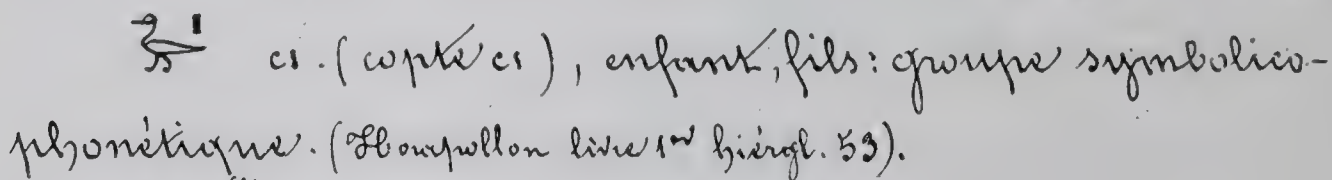 𓅭𓏤 ⲥⲓ. (copte ⲥⲓ), enfant, fils: groupe symbolico-
phonétique. (Horapollon livre 1er hiérogl. 53).